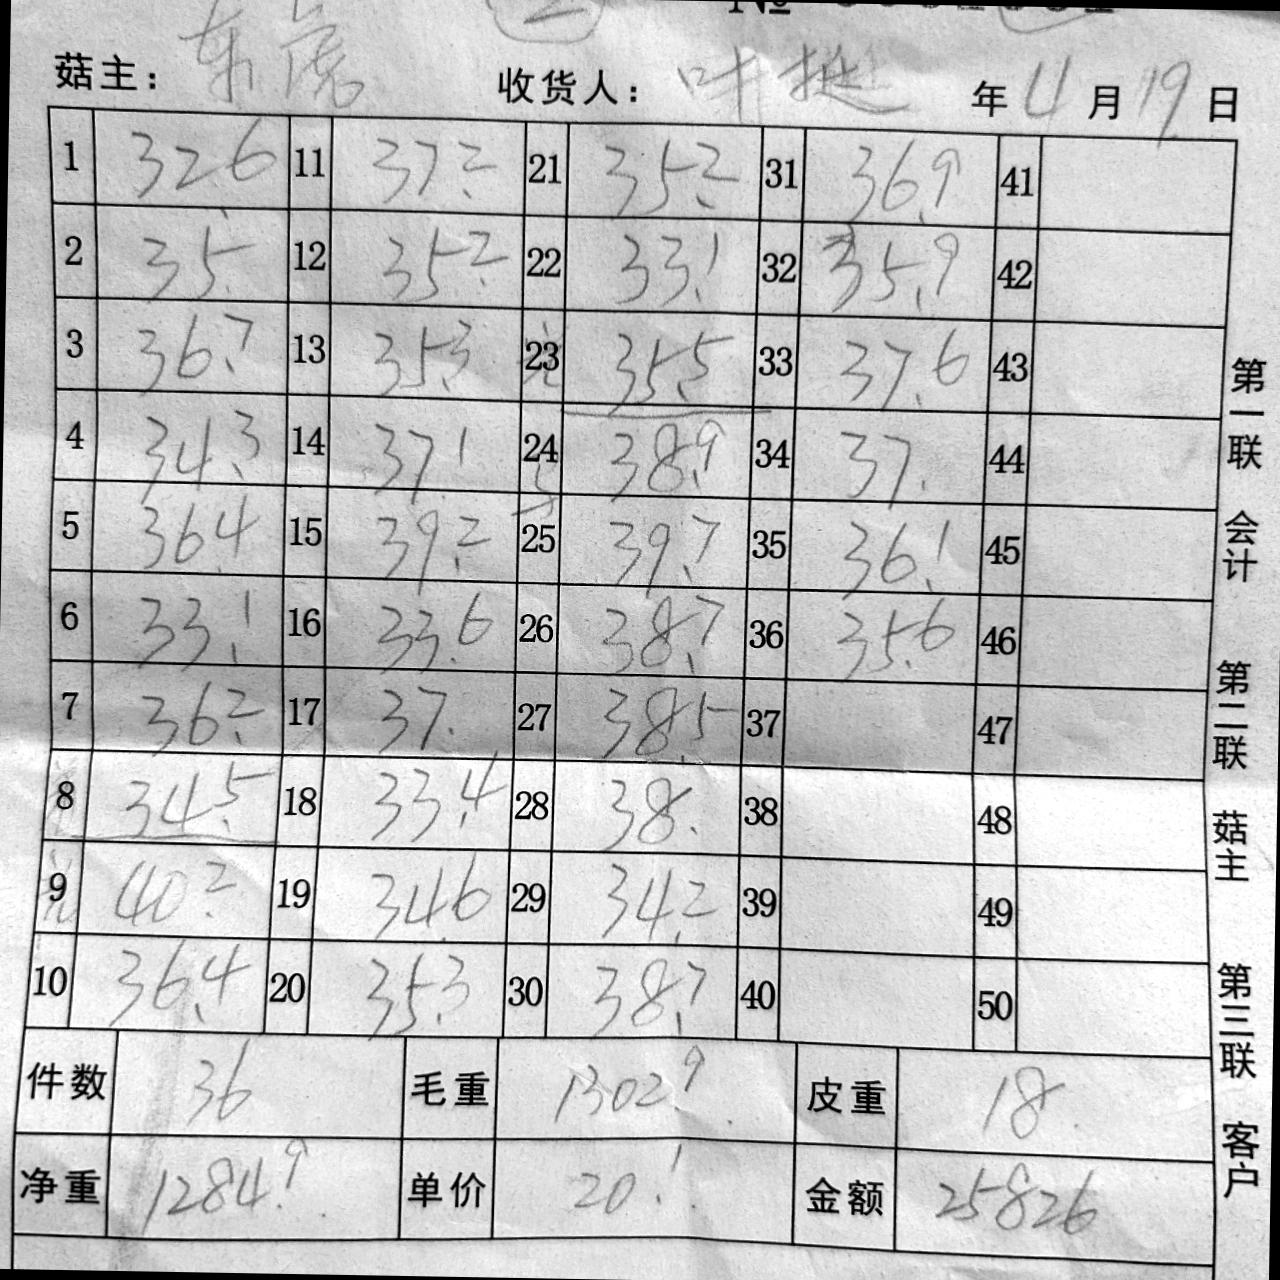 菇主： 东虎 收货人： 年 4 月 19 日
1 32.6 11 37.2 21 35.2 31 36.9 41
2 35. 12 35.2 22 33.1 32 35.9 42
3 36.7 13 35.3 23 35.5 33 37.6 43
4 34.3 14 37.1 24 38.9 34 37. 44
5 36.4 15 39.2 25 39.7 35 36.1 45
6 33.1 16 33.6 26 38.7 36 35.6 46
7 36.2 17 37. 27 38.5 37 47
8 34.5 18 33.4 28 38. 38 48
9 40.2 19 34.6 29 34.2 39 49
10 36.4 20 35.3 30 38.7 40 50
件数 36 毛重 1302.9 皮重 18
净重 1284.9 单价 20.1 金额 25826
第一联 会计 第二联 菇主 第三联 客户